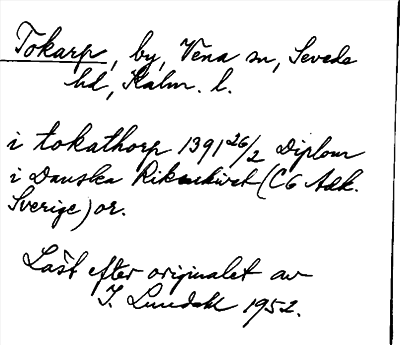 Tokarp, by, Vena sn, Sevede
hd, Kalm. l.
i tokathorp 1391 26/2 Diplom
i Danska Riksarkivet (C6 Adk.
Sverige) or.
Läst efter originalet av
I. Lundahl 1952.